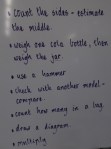 count the sides - estimate
the middle.
• weigh one cola bottle, then
weigh the jar.
• use a hammer
• check with another model -
compare.
• count how many in a bag.
• draw a diagram.
• multiply